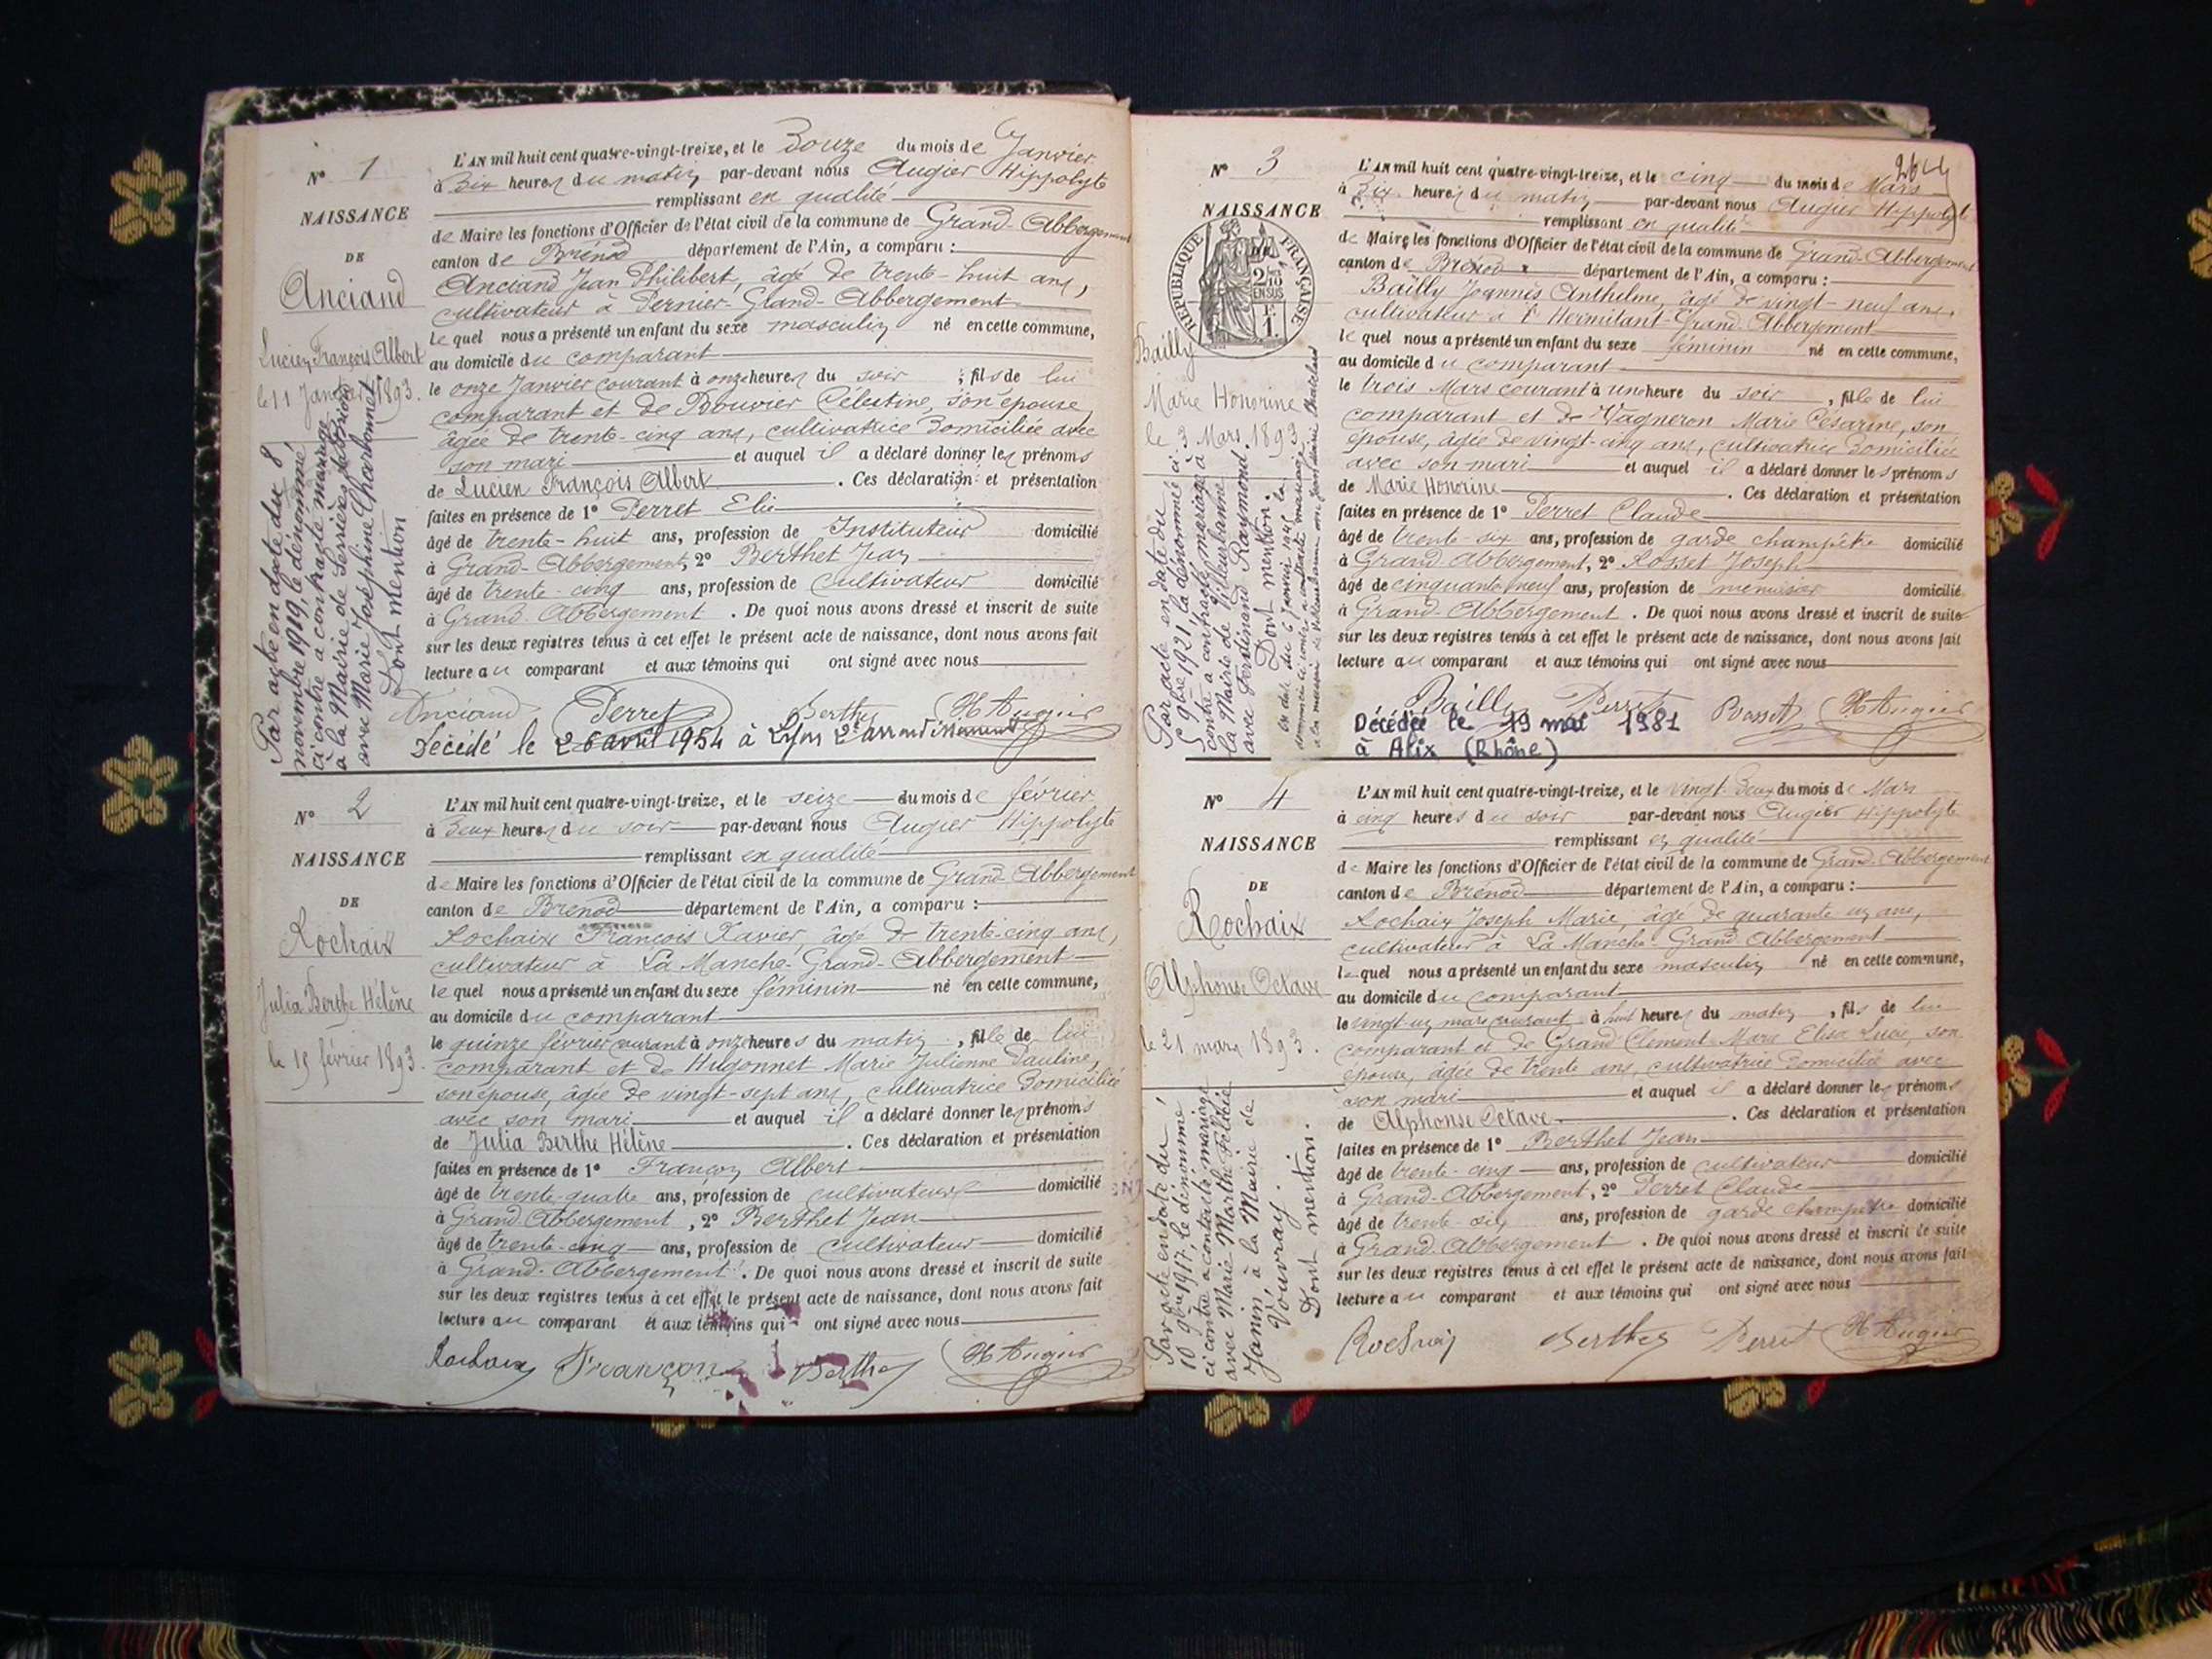 N° 1
NAISSANCE
DE
Anciand
Lucien François Albert
le 11 Janvier 1893.
Par acte en date du 8
novembre 1919, le dénommé
ci contre a contracté mariage
à la Mairie de Serrières de Briord
avec Marie Joséphine Charbonnet
Dont mention
L'AN mil huit cent quatre-vingt-treize, et le Douze du mois de Janvier
à Dix heures du matin par-devant nous Augier Hippolyte
remplissant en qualité
de Maire les fonctions d'Officier de l'état civil de la commune de Grand-Abbergement
canton de Brénod département de l'Ain, a comparu :
Anciand Jean Philibert, âgé de trente-huit ans,
cultivateur à Pernier-Grand-Abbergement
le quel nous a présenté un enfant du sexe masculin né en cette commune,
au domicile du comparant
le onze Janvier courant à onze heures du soir ; fils de lui
comparant et de Bouvier Célestine, son épouse,
âgée de trente-cinq ans, cultivatrice Domiciliée avec
son mari et auquel il a déclaré donner les prénoms
de Lucien François Albert . Ces déclaration et présentation
faites en présence de 1° Perret Elie
âgé de trente-huit ans, profession de Instituteur domicilié
à Grand-Abbergement, 2° Berthet Jean
âgé de trente-cinq ans, profession de cultivateur domicilié
à Grand-Abbergement . De quoi nous avons dressé et inscrit de suite
sur les deux registres tenus à cet effet le présent acte de naissance, dont nous avons fait
lecture au comparant et aux témoins qui ont signé avec nous
Anciand Perret Berthet H Augier
Décédé le 26 avril 1954 à Lyon 2e arrondissement
N° 2
NAISSANCE
DE
Rochaix
Julia Berthe Hélène
le 15 février 1893.
L'AN mil huit cent quatre-vingt-treize, et le seize du mois de février
à Deux heures du soir par-devant nous Augier Hippolyte
remplissant en qualité
de Maire les fonctions d'Officier de l'état civil de la commune de Grand-Abbergement
canton de Brénod département de l'Ain, a comparu :
Rochaix François Xavier, âgé de trente-cinq ans,
cultivateur à La Manche-Grand-Abbergement
le quel nous a présenté un enfant du sexe féminin né en cette commune,
au domicile du comparant
le quinze février courant à onze heures du matin , fille de lui
comparant et de Hugonnet Marie Julienne Pauline,
son épouse, âgée de vingt-sept ans, cultivatrice Domiciliée
avec son mari et auquel il a déclaré donner les prénoms
de Julia Berthe Hélène . Ces déclaration et présentation
faites en présence de 1° Françon Albert
âgé de trente-quatre ans, profession de cultivateur domicilié
à Grand Abbergement , 2° Berthet Jean
âgé de trente-cinq ans, profession de cultivateur domicilié
à Grand-Abbergement . De quoi nous avons dressé et inscrit de suite
sur les deux registres tenus à cet effet le présent acte de naissance, dont nous avons fait
lecture au comparant et aux témoins qui ont signé avec nous
Rochaix Françon Berthet H Augier
264
N° 3
NAISSANCE
RÉPUBLIQUE FRANÇAISE
2/10 EN SUS
Bailly
Marie Honorine
le 3 Mars 1893
Par acte en date du
5 9bre 1921, la dénommée ci
contre a contracté mariage à
la Mairie de Villeurbanne
avec Ferdinand Raymond.
Dont mention.
L'AN mil huit cent quatre-vingt-treize, et le cinq du mois de Mars
à Dix heures du matin par-devant nous Augier Hippolyte
remplissant en qualité
de Maire les fonctions d'Officier de l'état civil de la commune de Grand-Abbergement
canton de Brénod département de l'Ain, a comparu :
Bailly Joannès Anthelme, âgé de vingt-neuf ans,
cultivateur à l'Hermitant-Grand Abbergement
le quel nous a présenté un enfant du sexe féminin né en cette commune,
au domicile du comparant
le trois Mars courant à une heure du soir , fille de lui
comparant et de Vagneron Marie Césarine, son
épouse, âgée de vingt-cinq ans, cultivatrice Domiciliée
avec son mari et auquel il a déclaré donner les prénoms
de Marie Honorine . Ces déclaration et présentation
faites en présence de 1° Perret Claude
âgé de trente-six ans, profession de garde champêtre domicilié
à Grand Abbergement, 2° Rosset Joseph
âgé de cinquante neuf ans, profession de menuisier domicilié
à Grand-Abbergement . De quoi nous avons dressé et inscrit de suite
sur les deux registres tenus à cet effet le présent acte de naissance, dont nous avons fait
lecture au comparant et aux témoins qui ont signé avec nous
Bailly Perret Rosset H Augier
Décédée le 19 mai 1981
à Alix (Rhône)
N° 4
NAISSANCE
DE
Rochaix
Alphonse Octave
le 21 mars 1893.
Par acte en date du
10 9bre 1917, le dénommé
ci contre a contracté mariage
avec Marie-Marthe Félicie
Janin à la Mairie de
Vouvray.
Dont mention.
L'AN mil huit cent quatre-vingt-treize, et le vingt-Deux du mois de Mars
à cinq heures du soir par-devant nous Augier Hippolyte
remplissant en qualité
de Maire les fonctions d'Officier de l'état civil de la commune de Grand-Abbergement
canton de Brénod département de l'Ain, a comparu :
Rochaix Joseph Marie, âgé de quarante un ans,
cultivateur à La Manche-Grand Abbergement
le quel nous a présenté un enfant du sexe masculin né en cette commune,
au domicile du comparant
le vingt-un mars courant à huit heures du matin , fils de lui
comparant et de Grand Clément Marie Elisa Lucie, son
épouse, âgée de trente ans, cultivatrice Domiciliée avec
son mari et auquel il a déclaré donner les prénoms
de Alphonse Octave . Ces déclaration et présentation
faites en présence de 1° Berthet Jean
âgé de trente-cinq ans, profession de cultivateur domicilié
à Grand-Abbergement, 2° Perret Claude
âgé de trente-six ans, profession de garde champêtre domicilié
à Grand-Abbergement . De quoi nous avons dressé et inscrit de suite
sur les deux registres tenus à cet effet le présent acte de naissance, dont nous avons fait
lecture au comparant et aux témoins qui ont signé avec nous
Rochaix Berthet Perret H Augier